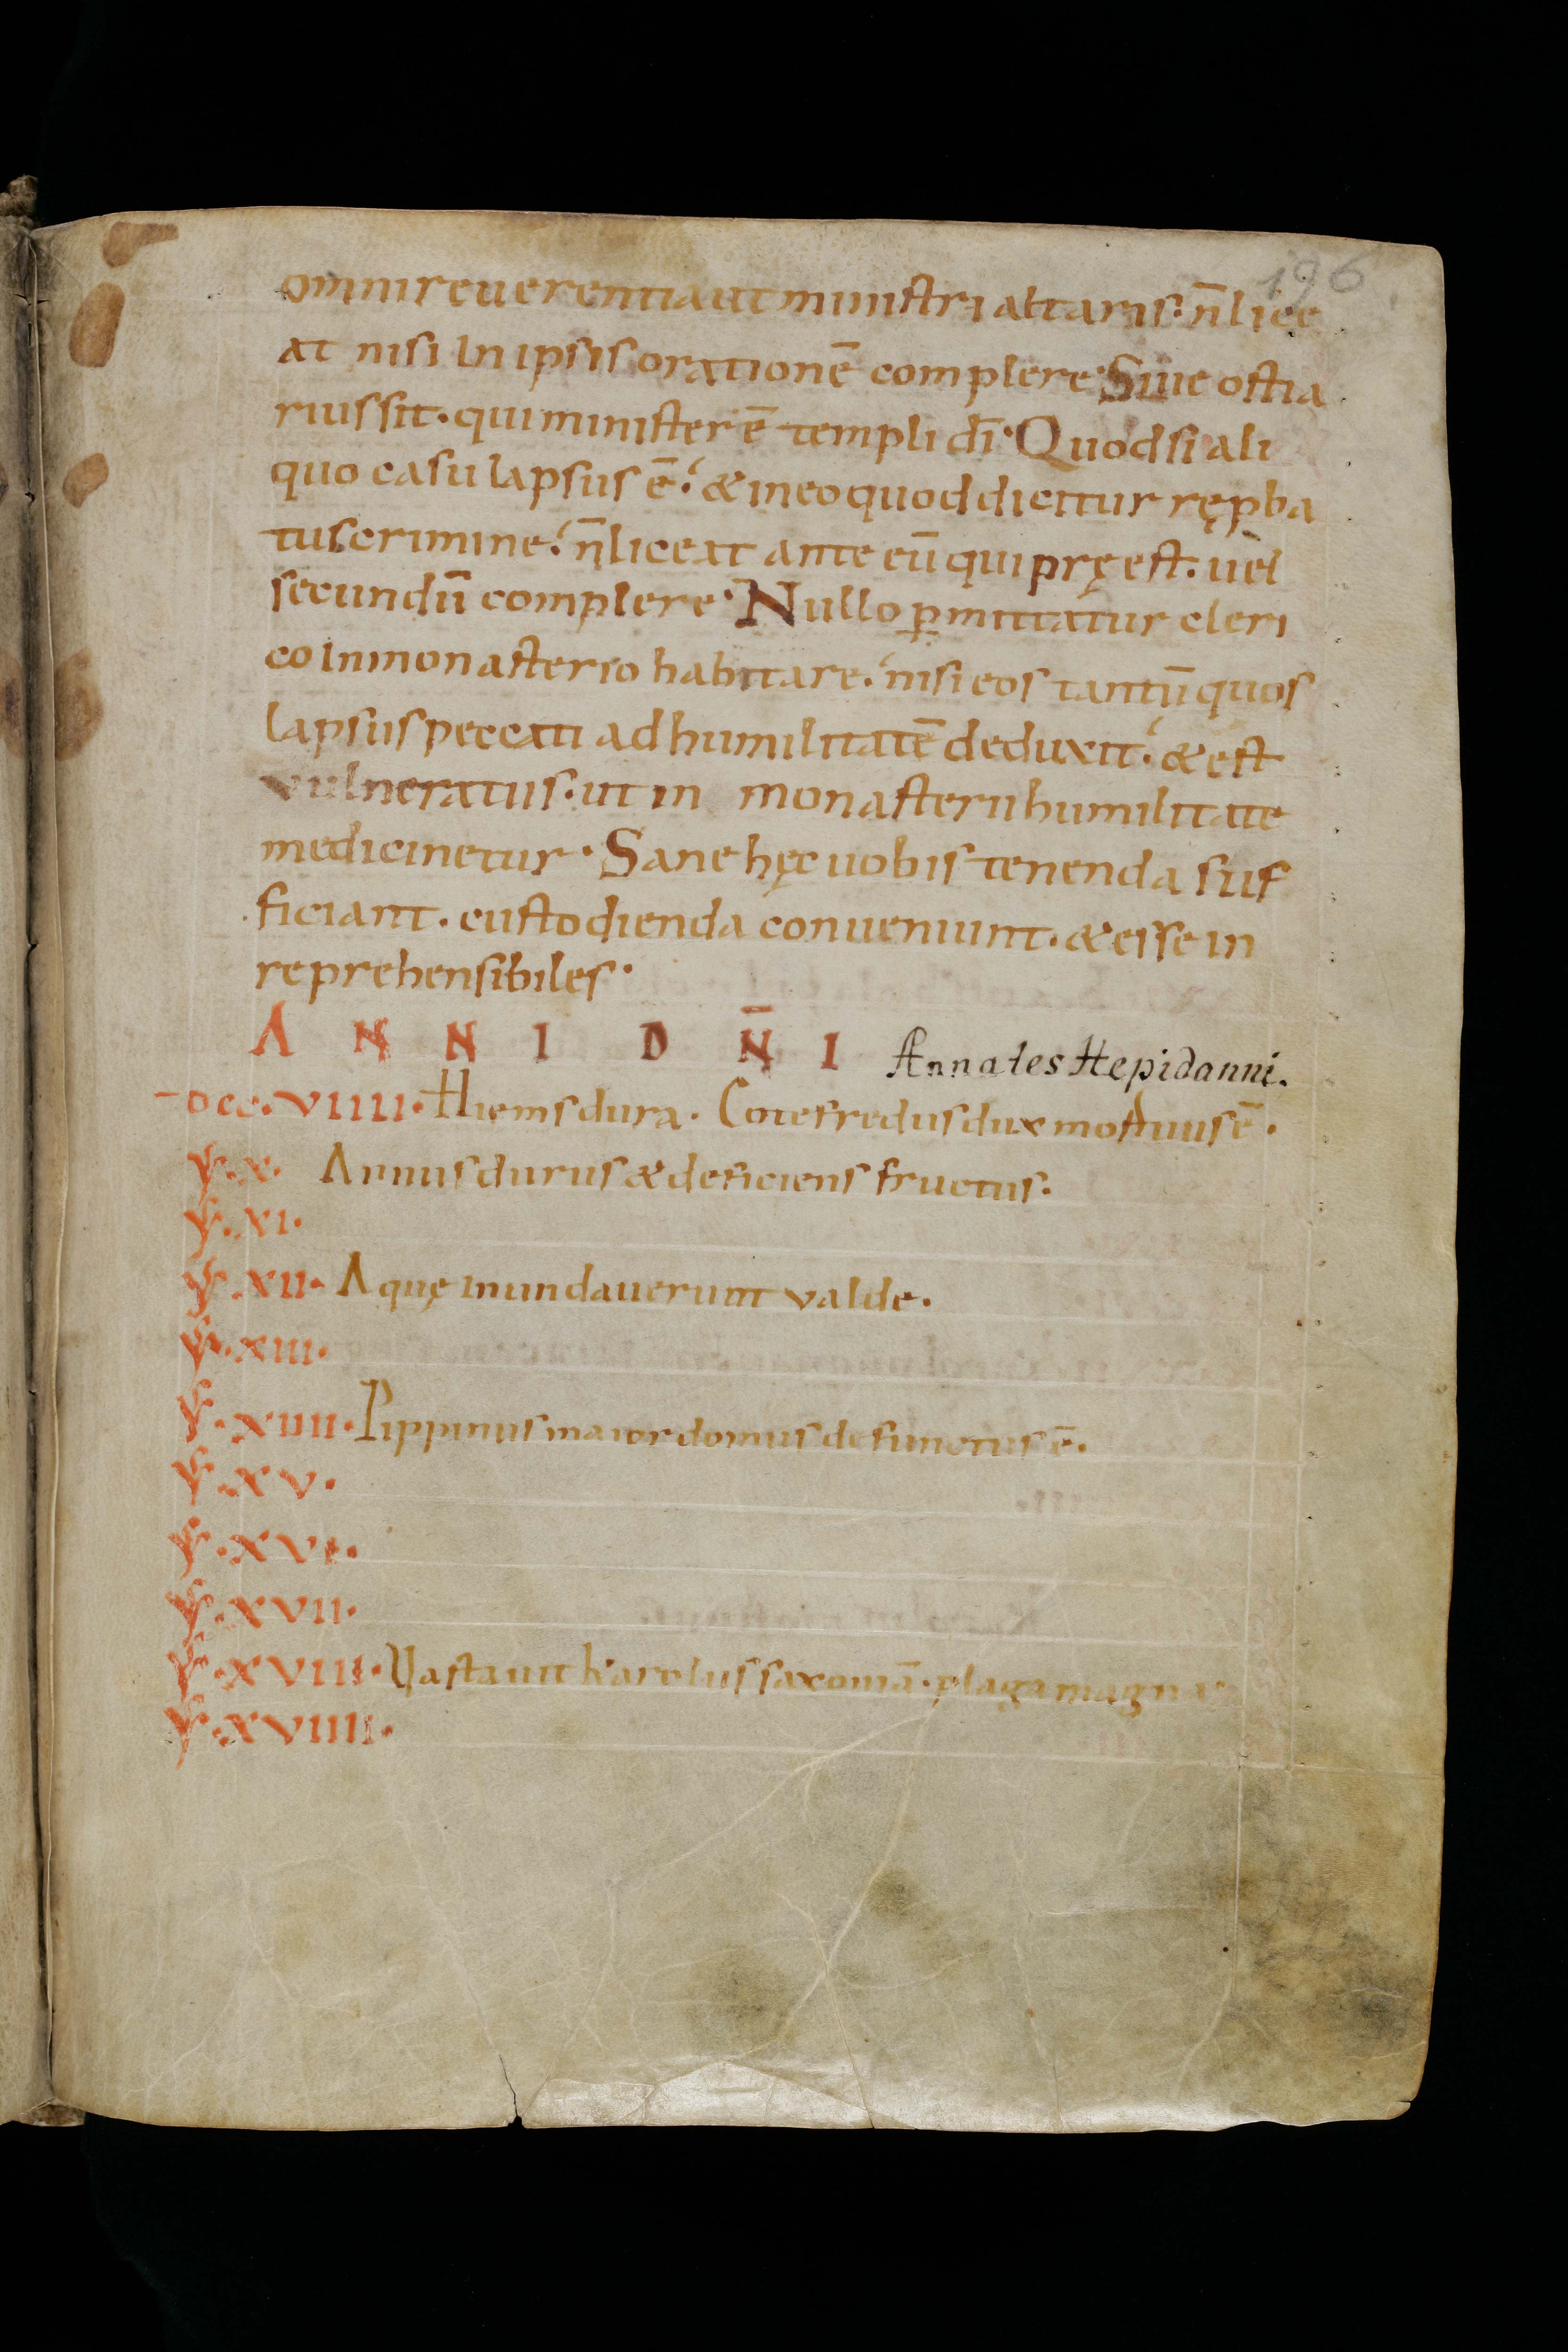 196
omni reuerentia ut ministri altaris. n̄ lice
at nisi In ipsis orationē complere. Siue ostia
rius sit. qui minister ē templi dī. Quod si ali
quo casu lapsus ē. & in eo quod dicitur rep̱ba
tus crimine. n̄ liceat ante eū qui pręest. uel
secundū complere. Nullo p̱mittatur cleri
co In monasterio habitare. nisi eos tantū quos
lapsus peccati ad humilitatē deduxit. & est
vulneratus. ut in monasterii humilitate
medicinetur. Sane hęc uobis tenenda suf
ficiant. custodienda conueniunt. & esse in
reprehensibiles.
A N N I D N̄ I Annales Hepidanni.
DCC. VIIII. Hiems dura. Cotefredus dux mortuus ē.
X. Annus durus & deficiens fructus.
XI.
XII. Aquę inundauerunt valde.
XIII.
XIIII. Pippinus maior domus defunctus ē.
XV.
XVI.
XVII.
XVIII. Vastauit karolus saxoniā. plaga magna
XVIIII.